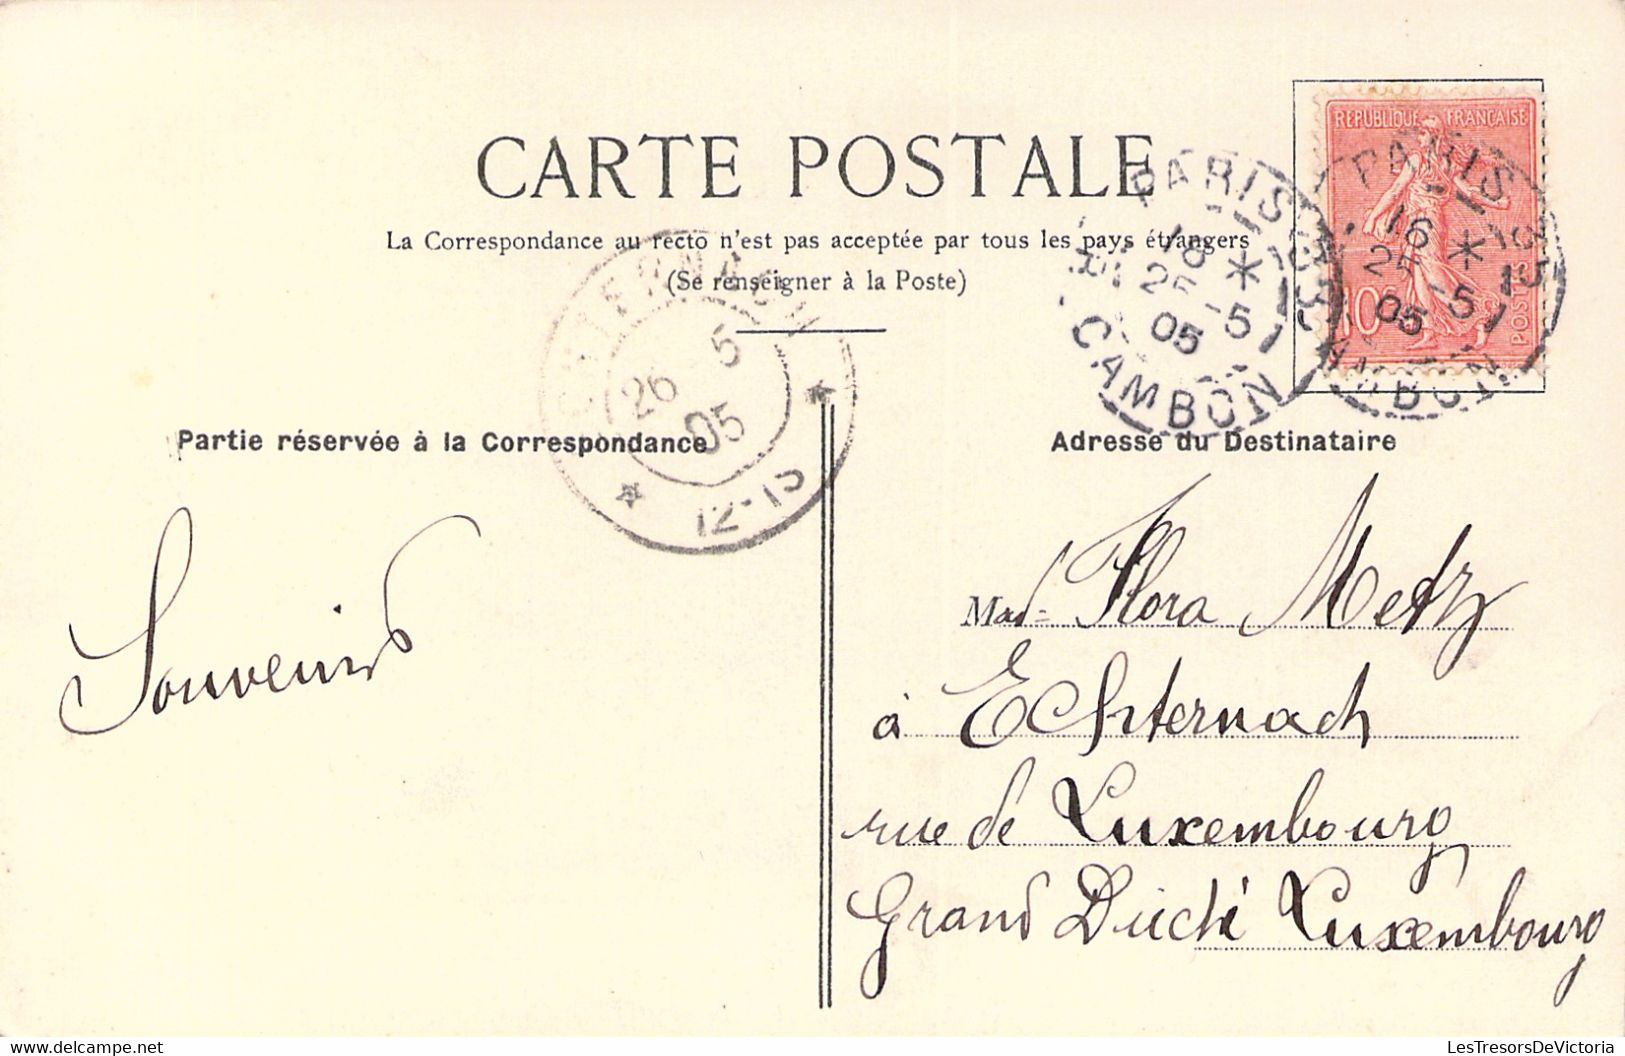 CARTE POSTALE
La Correspondance au recto n'est pas acceptée par tous les pays étrangers
(Se renseigner à la Poste)
REPUBLIQUE FRANÇAISE
POSTES
10c
PARIS
18
25-5
05
CAMBON
PARIS
16
25-5
05
ECHTERNACH
26 5
05
12-13
Partie réservée à la Correspondance
Souvenirs
Adresse du Destinataire
Mad= Flora Metz
à Echternach
rue de Luxembourg
Grand Duché Luxembourg
LesTresorsDeVictoria